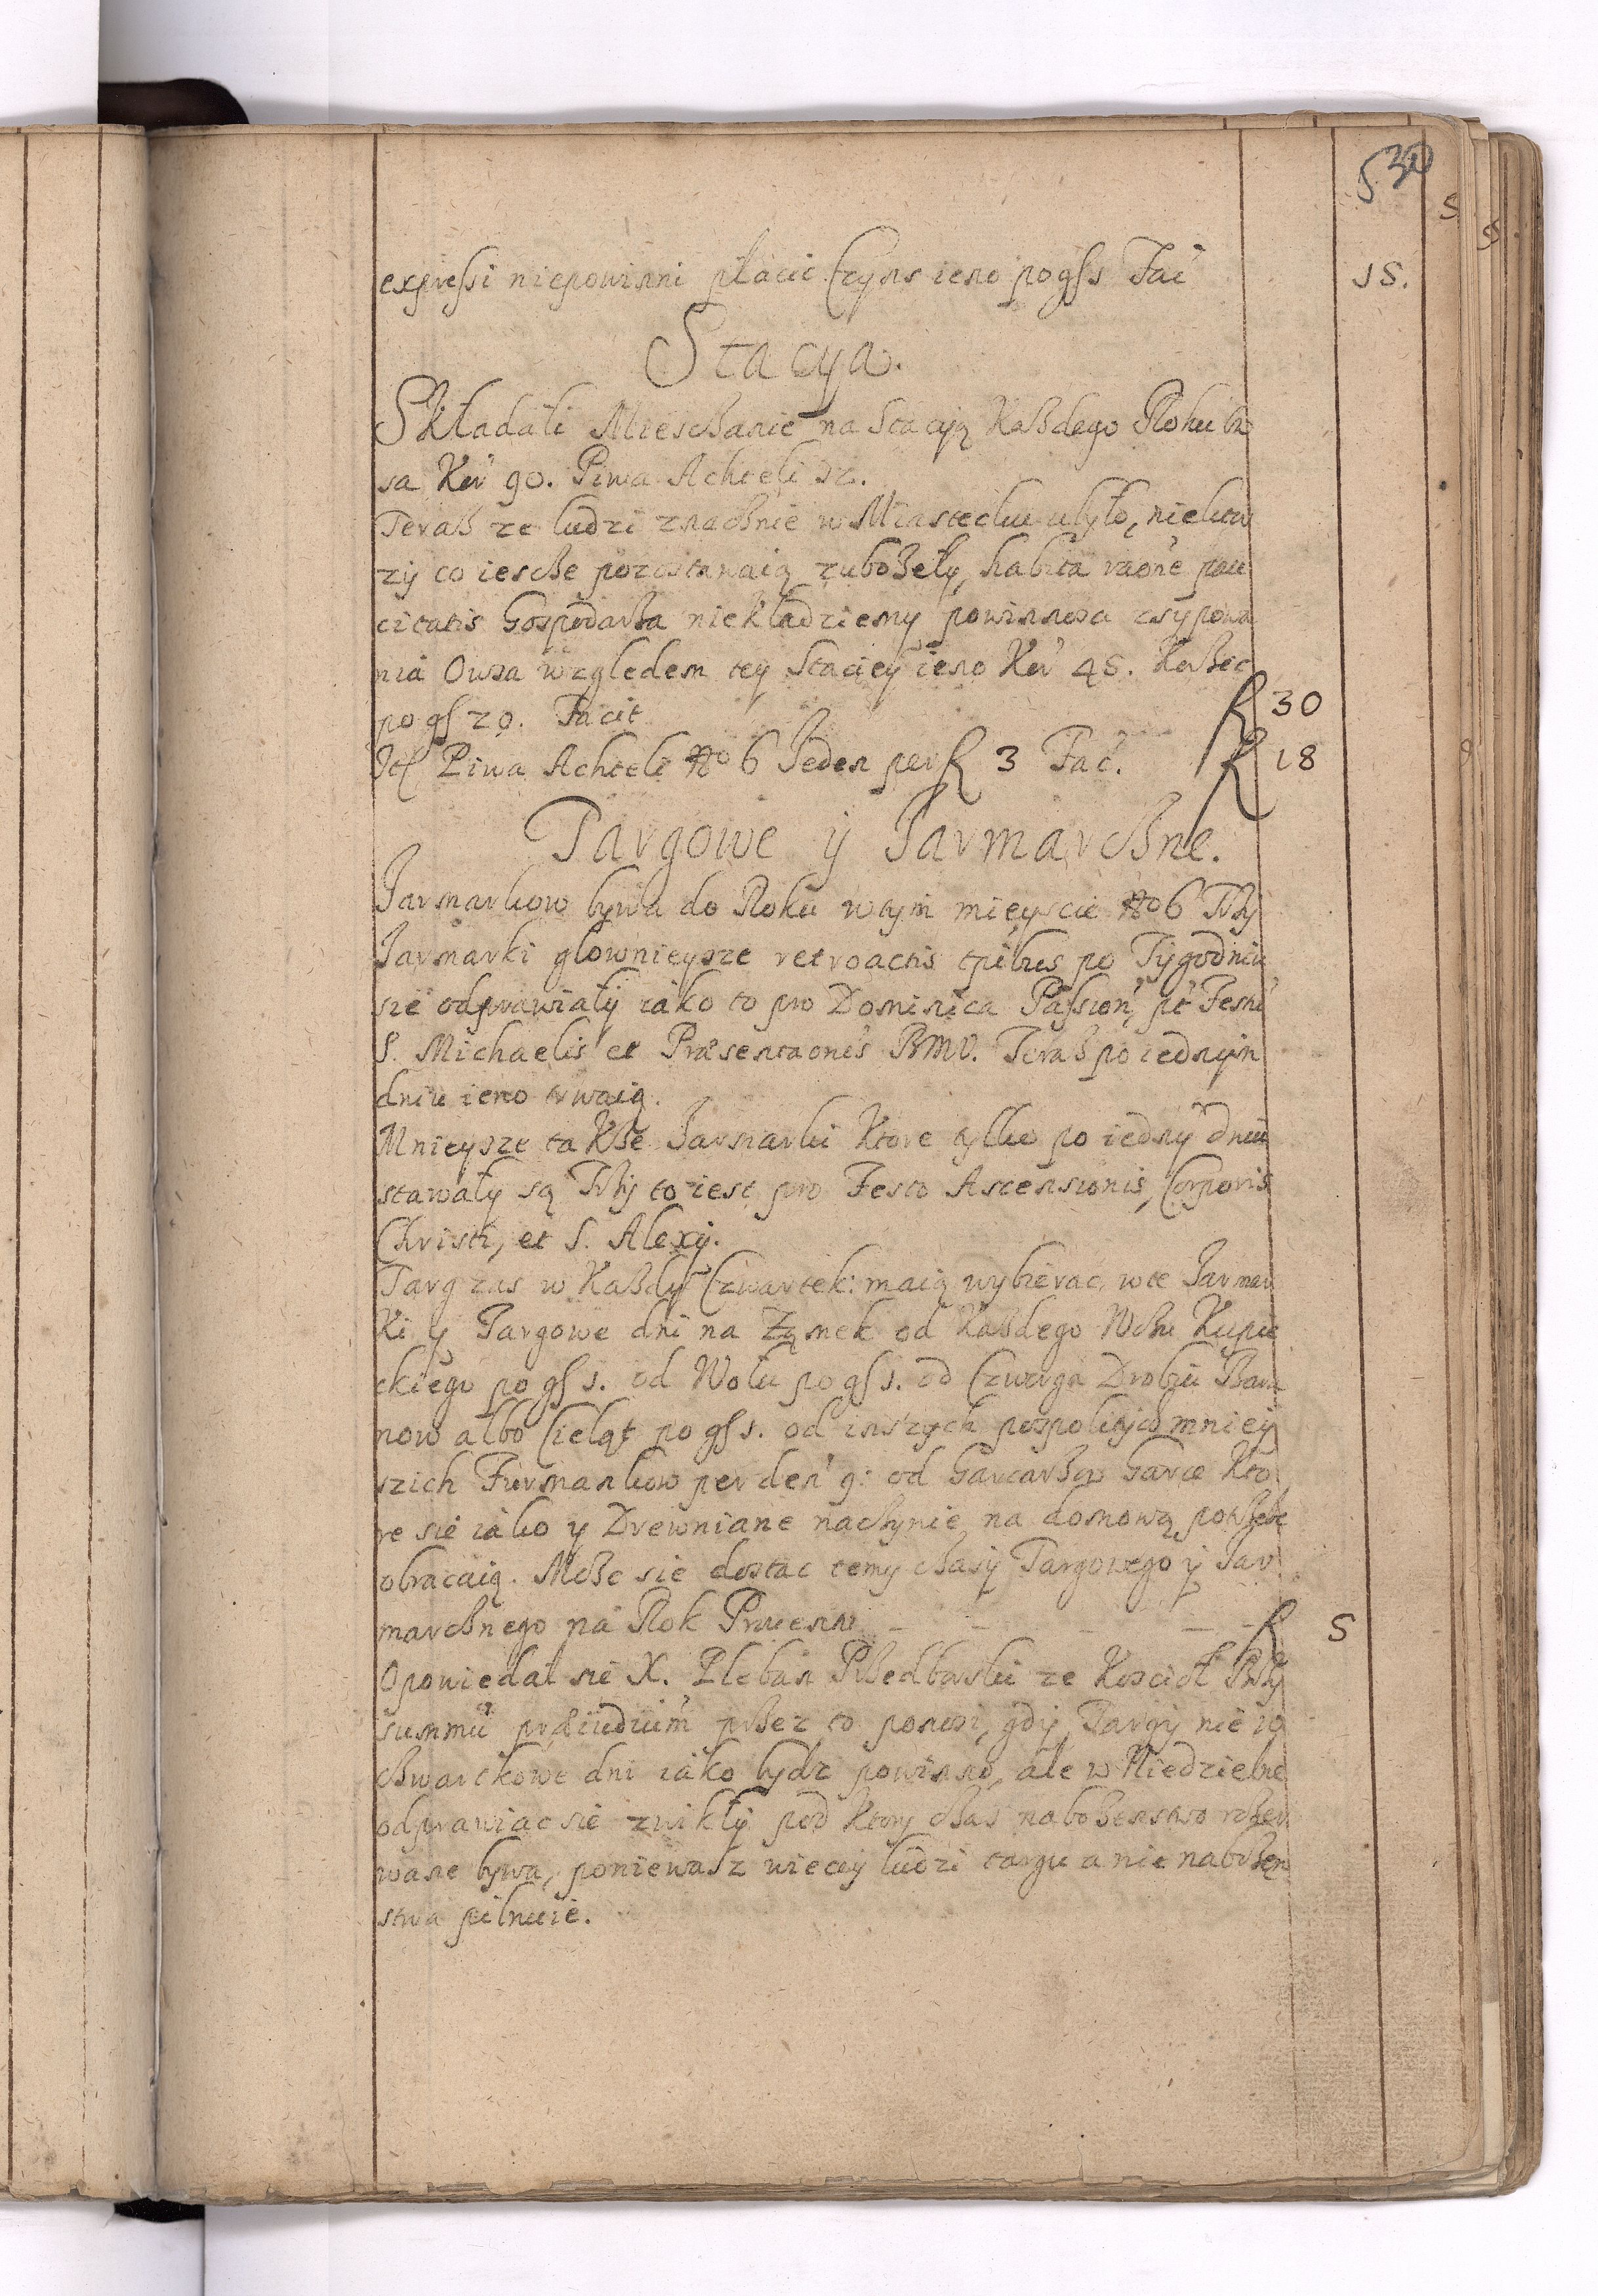 530
expressi niepowinni płacic Czyns ieno po gſ 5 Fac̃ 15.
Stacya.
Składali Miesczanie na Stacyą Każdego Roku Ow
sa Kor̃ 90. Piwa Achteli 12.
Teraß ze ludzi znacznie w Miasteczku ubyło, niektor
zy co iescze pozostawaią zubożeły, habita raõne pau
citatis Gospodarza niekładziemy powinnosci zsypowa
nia Owsa względem tey Staciey ieno Kor̃ 45. Korzec
po gſ 20. Facit f 30
It̃ Piwa Achteli No 6 Jeden per f 3 Fac̃. f 18
Targowe y Jarmarczne.
Jarmarkow bywa do Roku w tym mieyscie No 6 Trzy
Jarmarki głownieysze retroactis tp̃ibus po Tygodniu
sie odprawiały iako to pro Dominica Passion̄, p̃t Festũ
S. Michaelis et Præsentaõnis BMV. Teraß po iednym
dniu ieno trwaią.
Mnieysze także Jarmarki Ktore tylko po iedny̅ dniu
stawały są Trzy to iest pro Festo Ascensionis, Corporis
Christi, et S. Alexy.
Targ zas w Każdy Czwartek: maią wybierac w te Jarmar
Ki y Targowe dni na Zamek od Każdego Wozu Kupie
ckiego po gſ 1. od Wołu po gſ 1. od Czworga Drobiu Bara
now albo Cieląt po gſ 1. od inszych pospolitych mniey
szich Furmankow per den̄ 9: od Garcarzow Garce Kto
re sie iako y Drewniane naczynie na domową potrzebe
obracaią. Może sie dostac temy czasy Targowego y Jar
marcznego na Rok Proven̄ f 5
Opowiedał sie X. Pleban Przedborski ze Kosciół Boży
summũ præiudiũm przez to ponosi, gdy Targy nie w
czwartkowe dni iako bydz powinno, ale w Niedzielne
odprawiac sie zwikły pod Ktory czas nabożenstwo rozer
wane bywa, ponieważ wiecy ludzi targu a nie nabożen
stwa pilnuie.